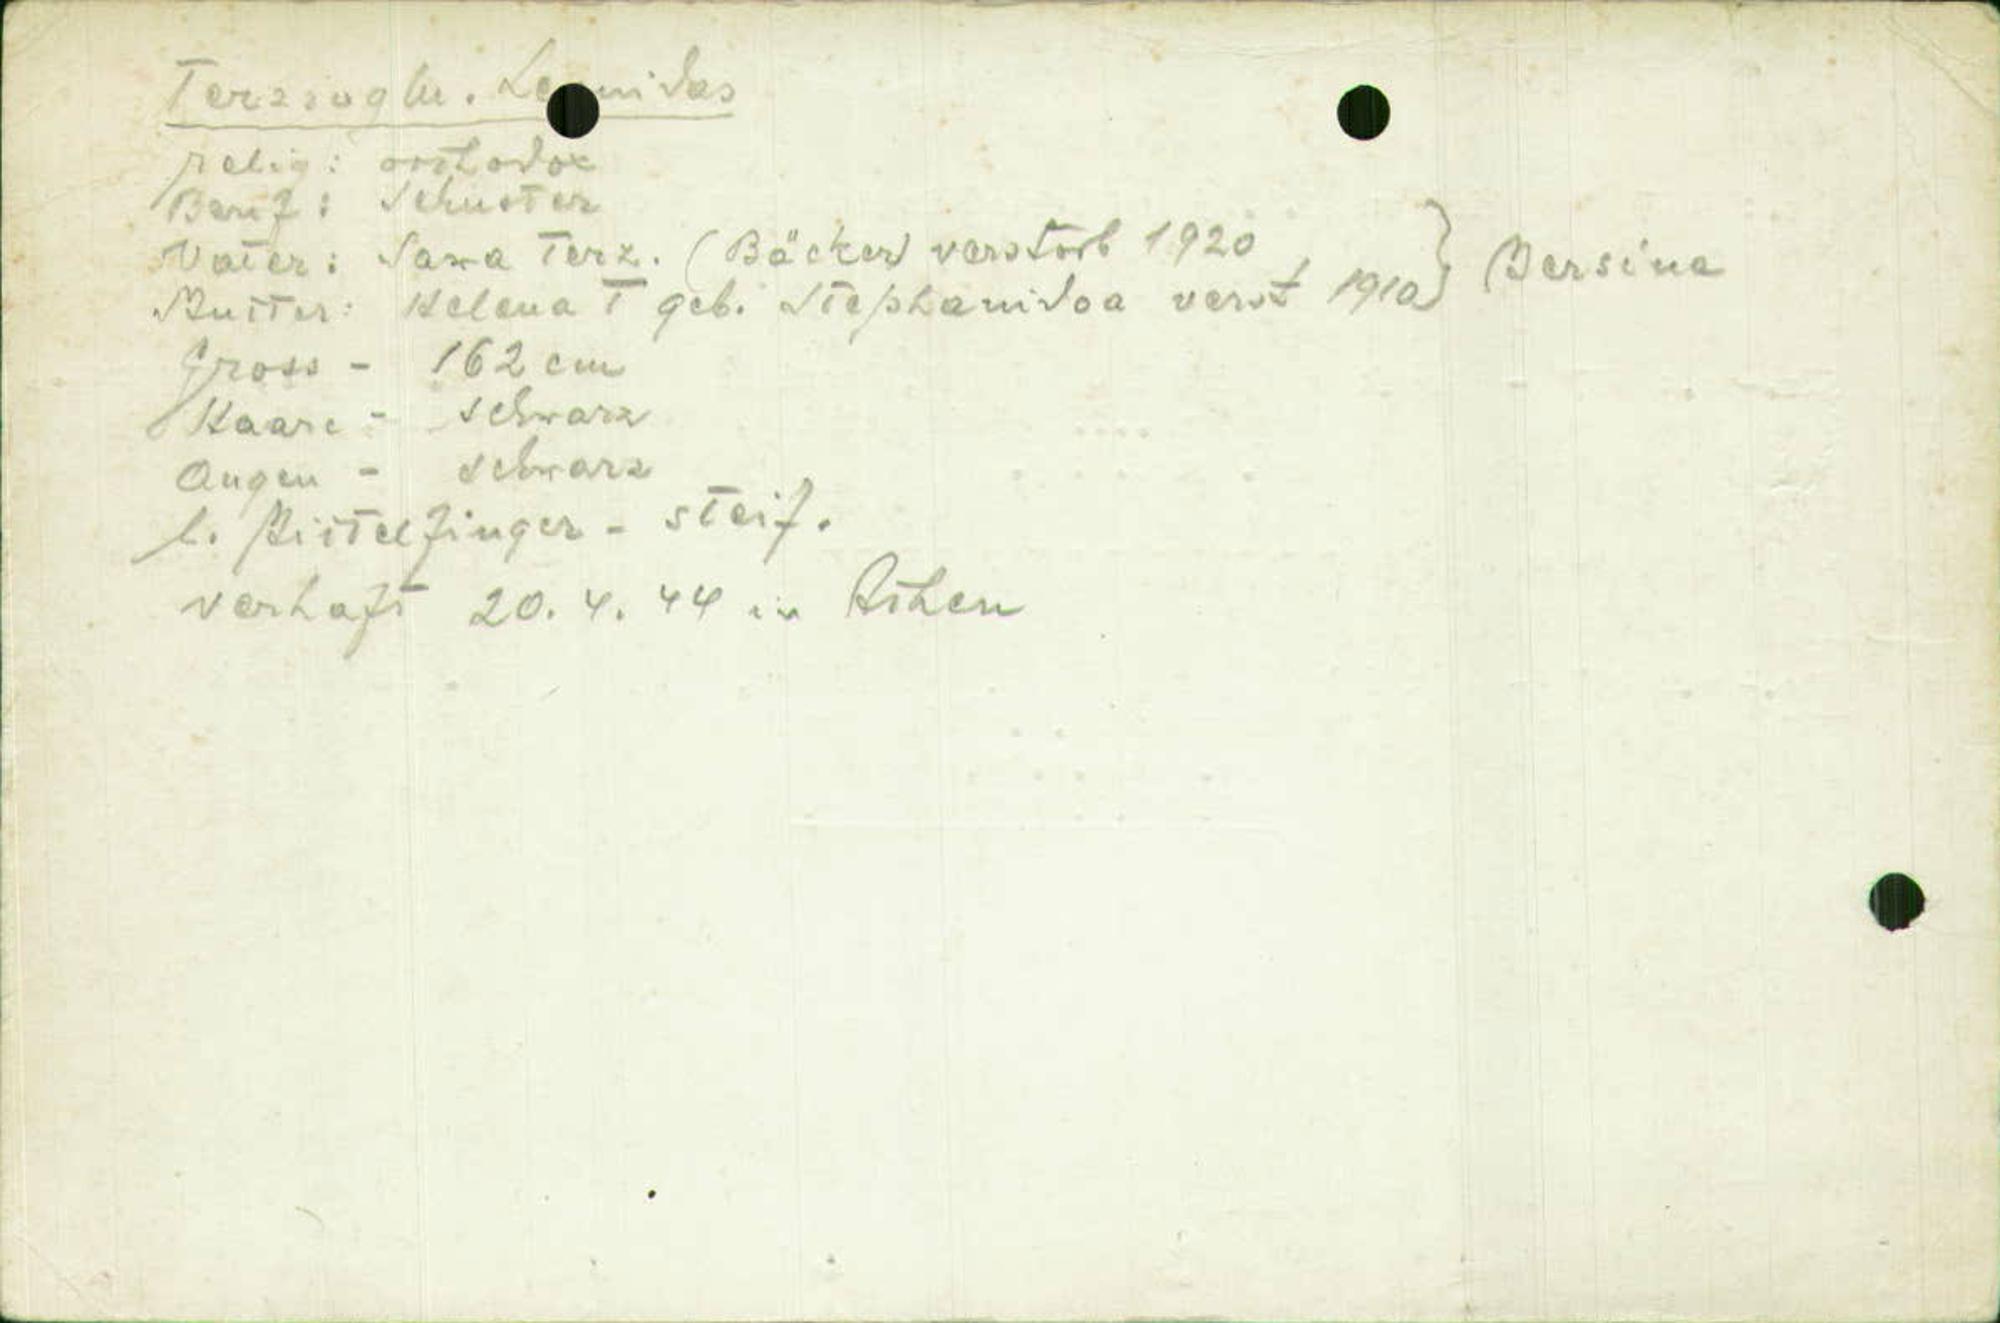 Terzioglu. Leonidas
relig: orthodox
Beruf: Schuster
Vater: Sawa Terz. (Bäcker) verstorb 1920
Mutter: Helena T geb. Stephanidoa verst 1910 } Bersina
Gross - 162 cm
Haare - schwarz
Augen - schwarz
l. Mittelfinger - steif.
verhaft 20. 4. 44 in Athen